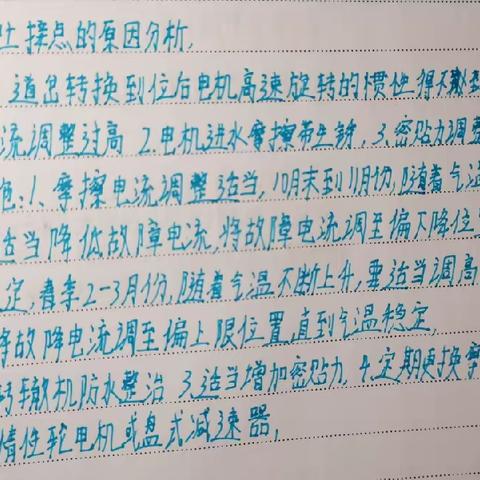 吐接点的原因分析,
道岔转换到位后电机高速旋转的惯性得不
流调整过高 2.电机进水摩擦带生锈, 3.密贴力调整
1、摩擦电流调整适当, 10月末到11月份, 随着气温
适当降低故障电流, 将故障电流调至偏下降位
定, 春季2-3月份, 随着气温不断上升, 要适当调高
将故障电流调至偏上限位置, 直到气温稳定,
转辙机防水整治 3.适当增加密贴力, 4.定期更换摩
惰性轮电机或盘式减速器,